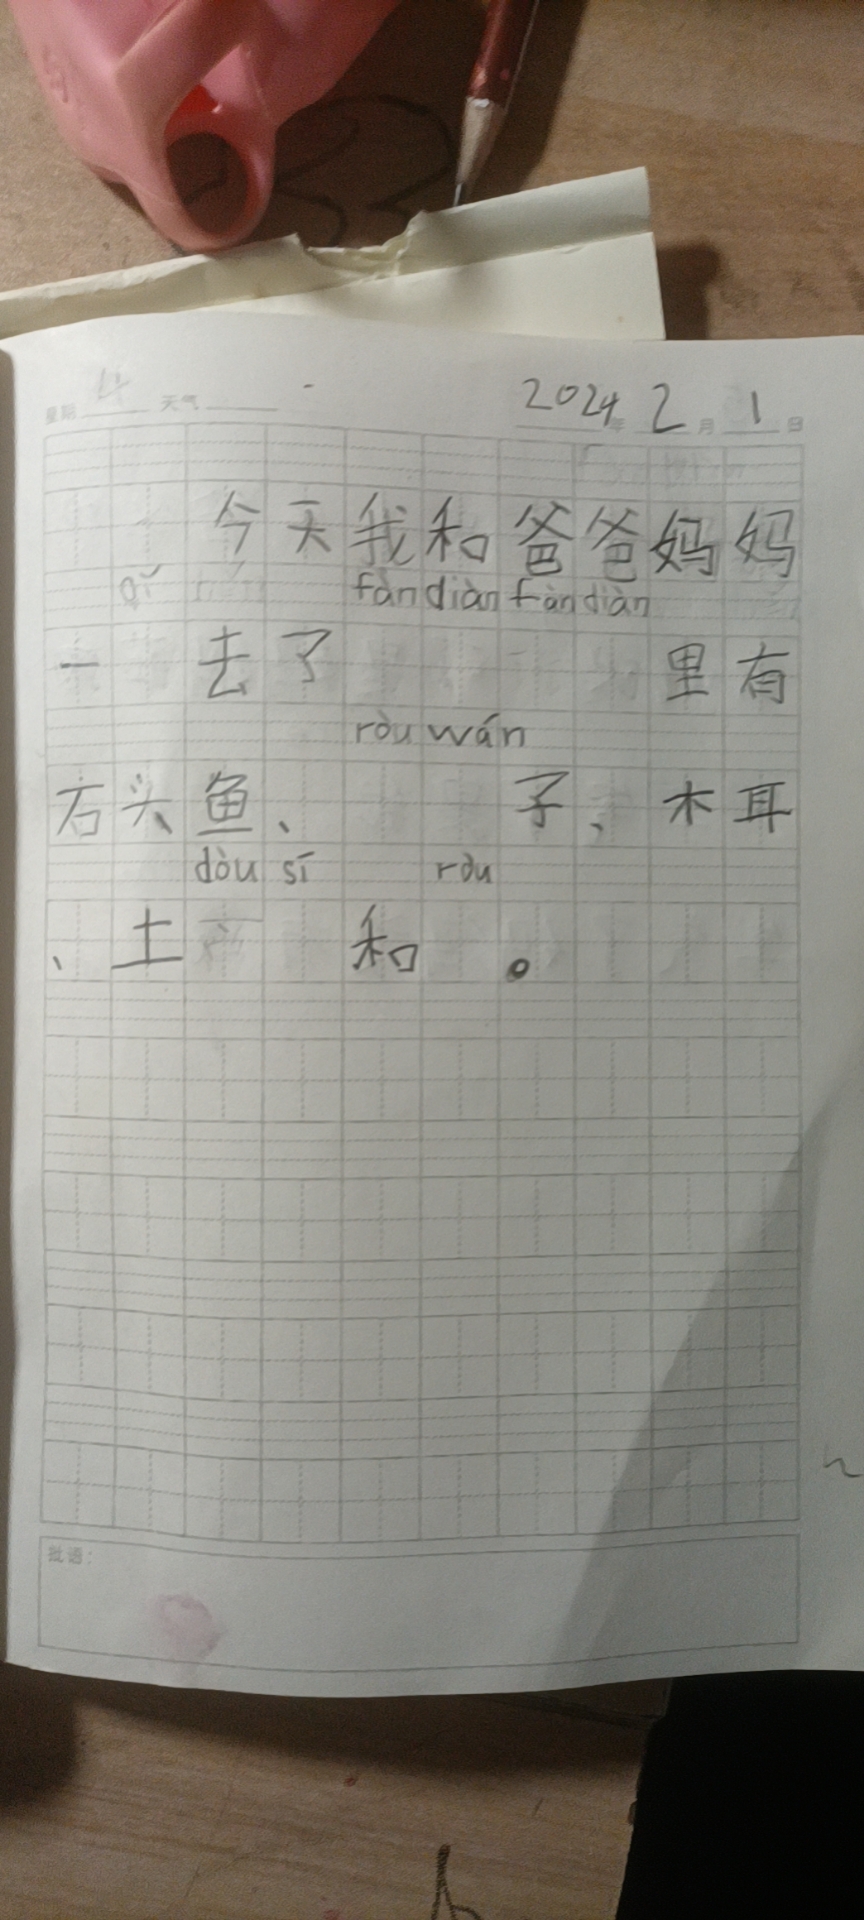 星期 4 天气 2024年 2月 1日
今天我和爸爸妈妈
qǐ fàn diàn fàn diàn
一 去了 里有
ròu wán
石头鱼、 子、木耳
dòu sī ròu
、土 和 。
批语：